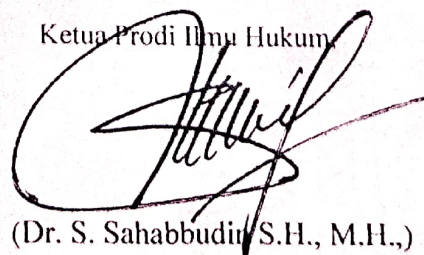 Ketua Prodi Ilmu Hukum,
(Dr. S. Sahabbudin S.H., M.H.,)